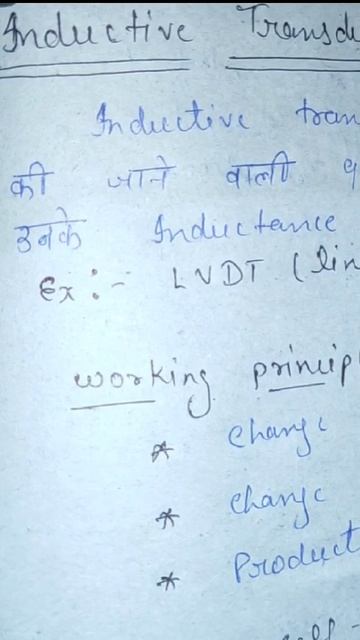 Inductive Transdu
Inductive tran
की जाने वाली
उनके Inductance
Ex :- LVDT (lin
working princip
* change
* change
* Product